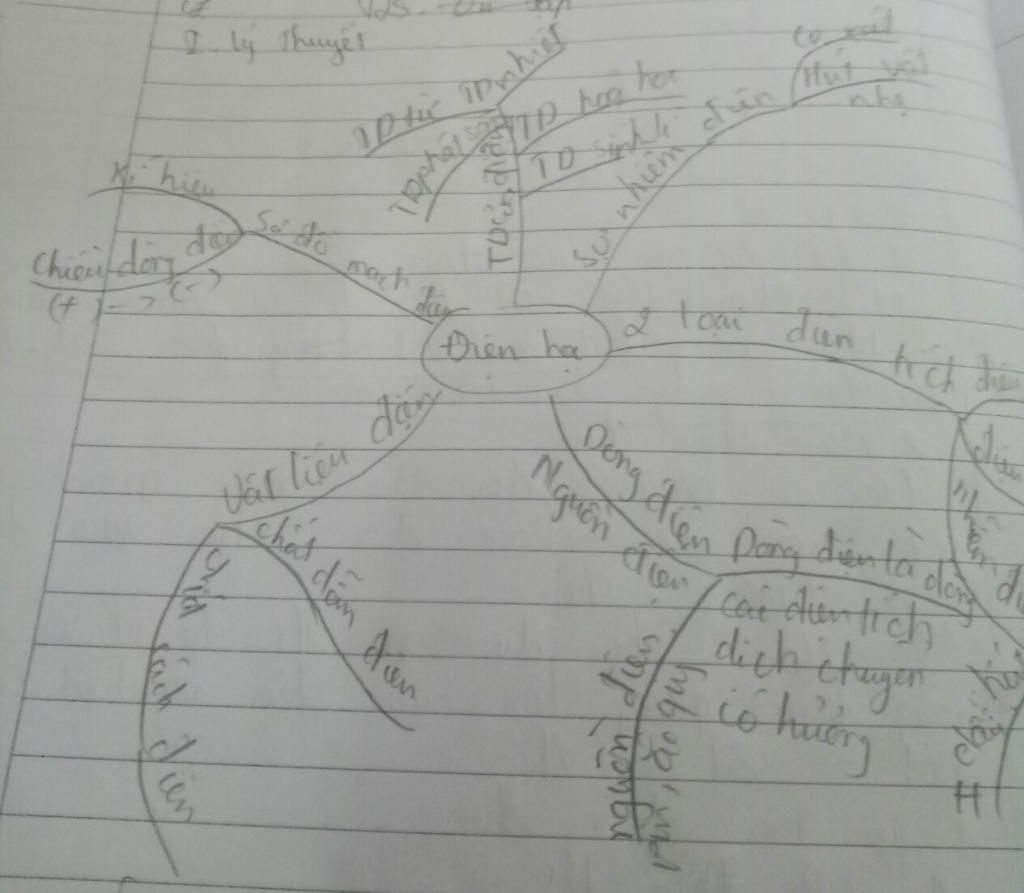 I Lý thuyết
TD nhiệt
TD từ
TD phát sáng
TD hoá học
TD sinh lí
TD của điện
Sự nhiễm điện
cọ xát
Hút vật
nhẹ
kí hiệu
Sơ đồ mạch điện
Chiều dòng điện
(+) -> (-)
Điện học
2 loại điện tích
điện
Vật liệu điện
Chất dẫn điện
Chất cách điện
Dòng điện
Nguồn điện
Dòng điện là dòng
các điện tích
dịch chuyển
có hướng
Nguồn điện
pin, ắc quy